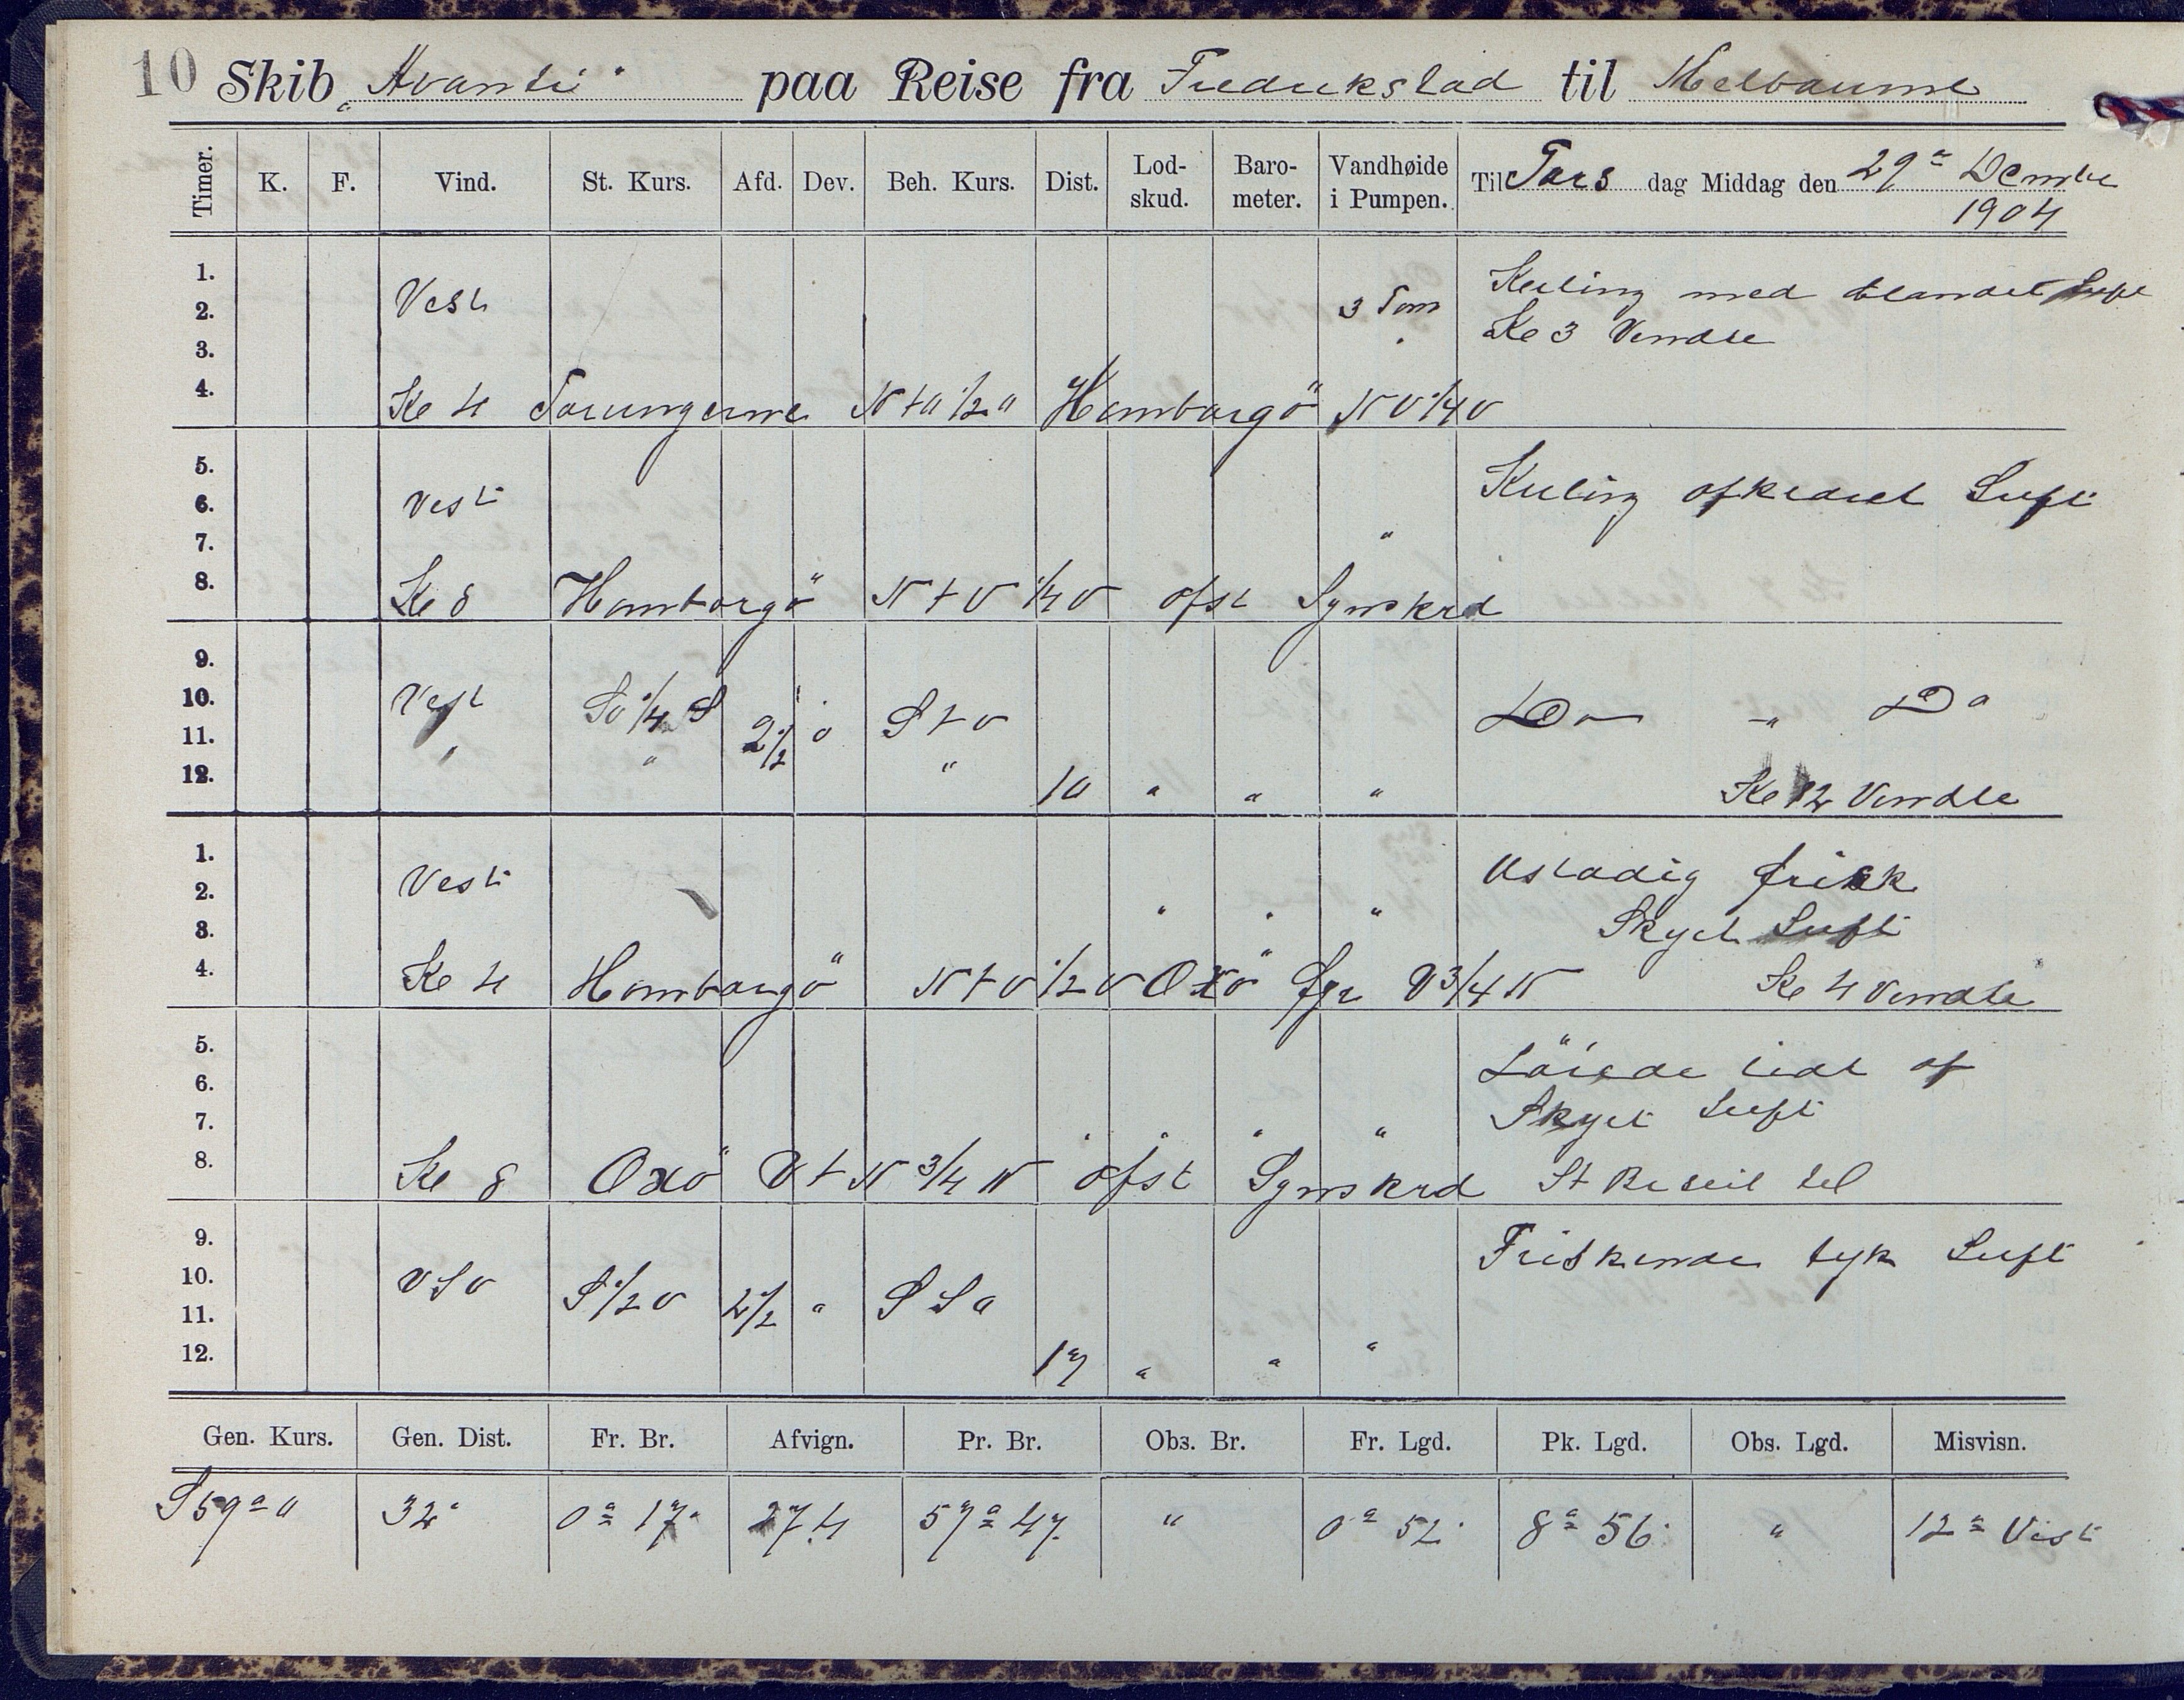 10 Skib „Avanti" paa Reise fra Fredrikstad til Melbourne
Timer. K. F. Vind. St. Kurs. Afd. Dev. Beh. Kurs. Dist. Lod-skud. Baro-meter. Vandhøide i Pumpen. Til Tors dag Middag den 29de Dembr
1904
1.
2. Vest 3 Tom Kuling med blandet Luft
3. " Kl 3 Vendte
4. Kl 4 Torungerne N t O 1/2 O Homborgö N V 1/4 V
5.
6. Vest Kuling afklaret Luft
7. "
8. Kl 8 Homborgö N t V 1/4 V afst Synskrd
9.
10. Vest SV 1/4 S 2 1/2 0 S t V Do - Do
11. " " "
12. 10 " " " Kl 12 Vendte
1.
2. Vest " " " Ustadig frisk
3. Skyet Luft
4. Kl 4 Homborgö N t V 1/2 V Oxö fyr V 3/4 N Kl 4 Vendte
5. Löiede lidt af
6.
7. " " " " Skyet Luft
8. Kl 8 Oxö V t N 3/4 N afst Synskrd St Beseil til
9. Friskende tyk Luft
10. VSV S 1/2 V 2 1/2 " S S O
11.
12. 17 " " "
Gen. Kurs. Gen. Dist. Fr. Br. Afvign. Pr. Br. Obs. Br. Fr. Lgd. Pk. Lgd. Obs. Lgd. Misvisn.
S 59° O 32' 0° 17' 27.4 57° 47' " 0° 52' 8° 56' " 12° Vest